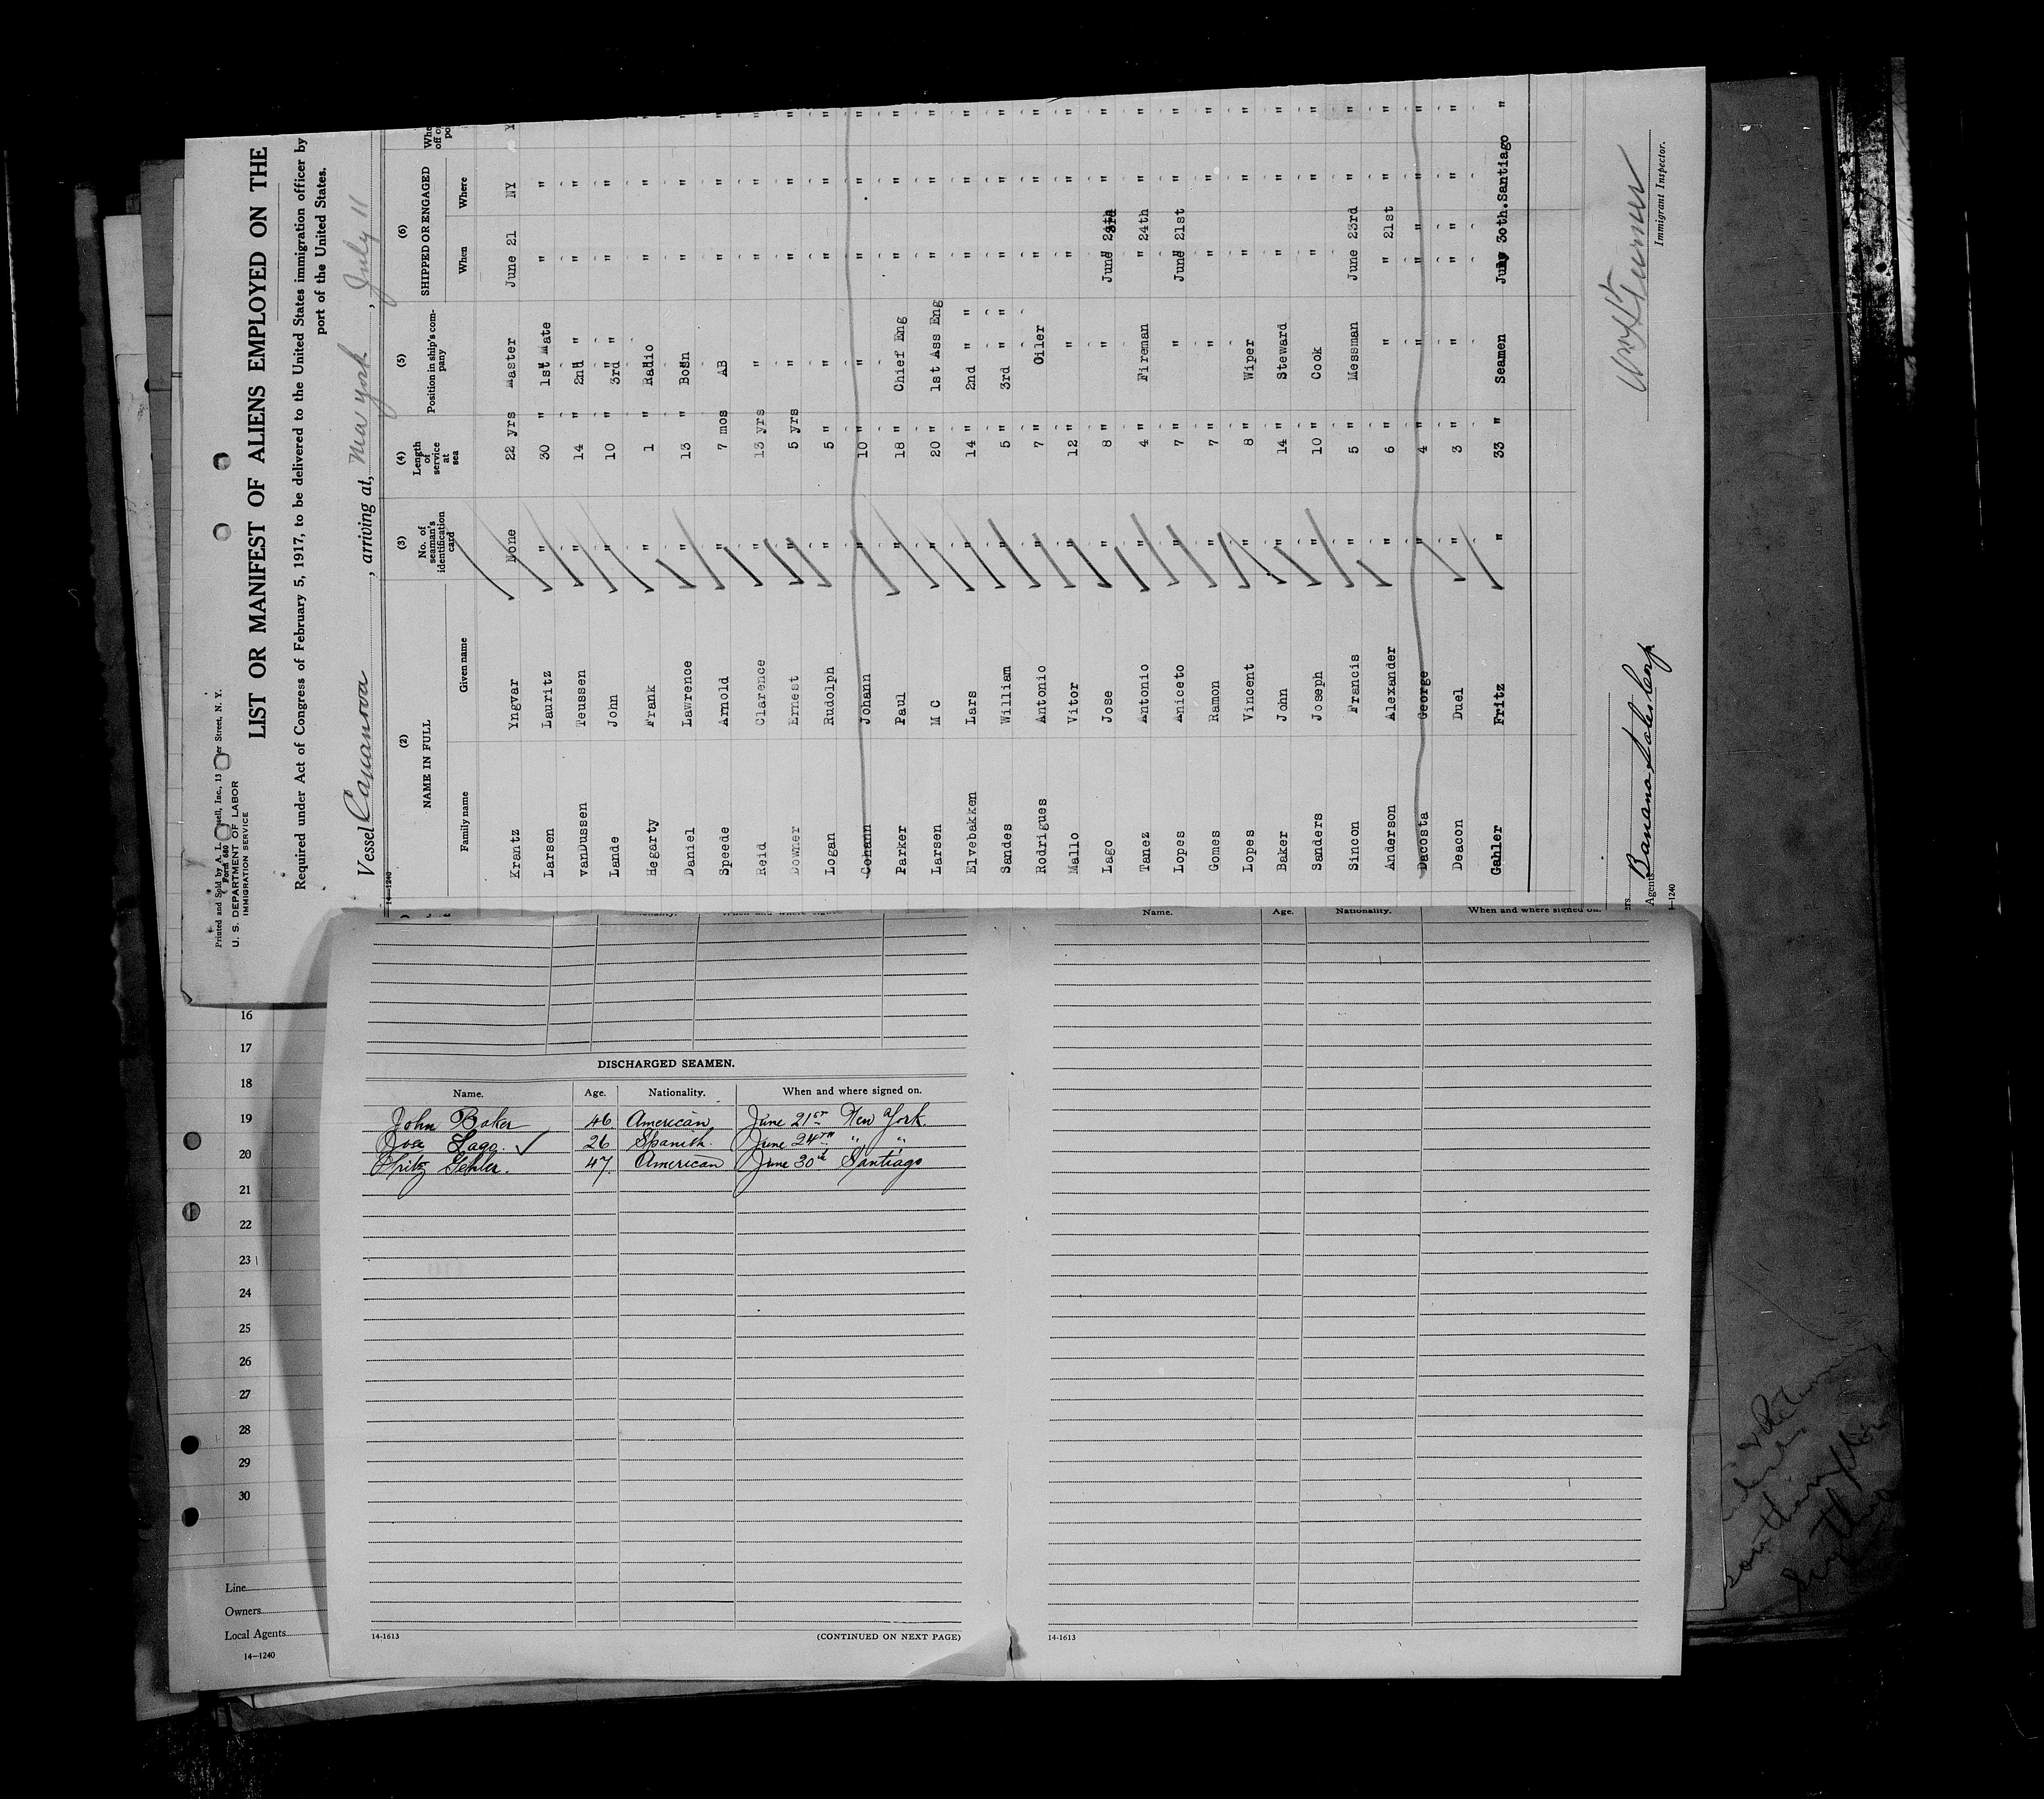 Printed and Sold by A. L. uell, Inc., 13 er Street, N. Y.
Form 680
U. S. DEPARTMENT OF LABOR
IMMIGRATION SERVICE
LIST OR MANIFEST OF ALIENS EMPLOYED ON THE
Required under Act of Congress of February 5, 1917, to be delivered to the United States immigration officer by
port of the United States.
Vessel , arriving at, New York , July 11
14-1240
(2) (3) (4) (5) (6)
NAME IN FULL No. of seaman's identification card Length of service at sea Position in ship's company SHIPPED OR ENGAGED
Family name Given name When Where
Krantz Yngvar None 22 yrs Master June 21 NY
Larsen Lauritz " 30 " 1st Mate " " "
vanDussen Teussen " 14 " 2nd " " " "
Lande John " 10 " 3rd " " " "
Hegarty Frank " 1 " Radio " " "
Daniel Lawrence " 13 " Bosn " " "
Speede Arnold " 7 mos AB " " "
Reid Clarence " 13 yrs " " " "
Downer Ernest " 5 yrs " " " "
Logan Rudolph " 5 " " " " "
Cohann Johann " 10 " " " " "
Parker Paul " 18 " Chief Eng " " "
Larsen M C " 20 " 1st Ass Eng " " "
Elvebakken Lars " 14 " 2nd " " " " "
Sandes William " 5 " 3rd " " " " "
Rodrigues Antonio " 7 " Oiler " " "
Mallo Vitor " 12 " " " " "
Lago Jose " 8 " " June 24th " "
Tanez Antonio " 4 " Fireman " 24th " "
Lopes Aniceto " 7 " " June 21st " "
Gomes Ramon " 7 " " " " "
Lopes Vincent " 8 " Wiper " " "
Baker John " 14 " Steward " " "
Sanders Joseph " 10 " Cook " " "
Sincon Francis " 5 " Messman June 23rd " "
Anderson Alexander " 6 " " " 21st " "
Dacosta George " 4 " " " " " "
Deacon Duel " 3 " " " " " "
Gahler Fritz " 33 " Seamen 30th. Santiago "
Agents Banana Sales Corp
14-1240
Immigrant Inspector.
Name. Age. Nationality. When and where signed on.
DISCHARGED SEAMEN.
Name. Age. Nationality. When and where signed on.
John Baker 46 American June 21st New York.
Jose Lago. ✓ 26 Spanish. June 24th " "
Fritz Gehler. 47 American June 30th Santiago
14-1613 (CONTINUED ON NEXT PAGE)
14-1613
16
17
18
19
20
21
22
23
24
25
26
27
28
29
30
Line
Owners
Local Agents
14-1240